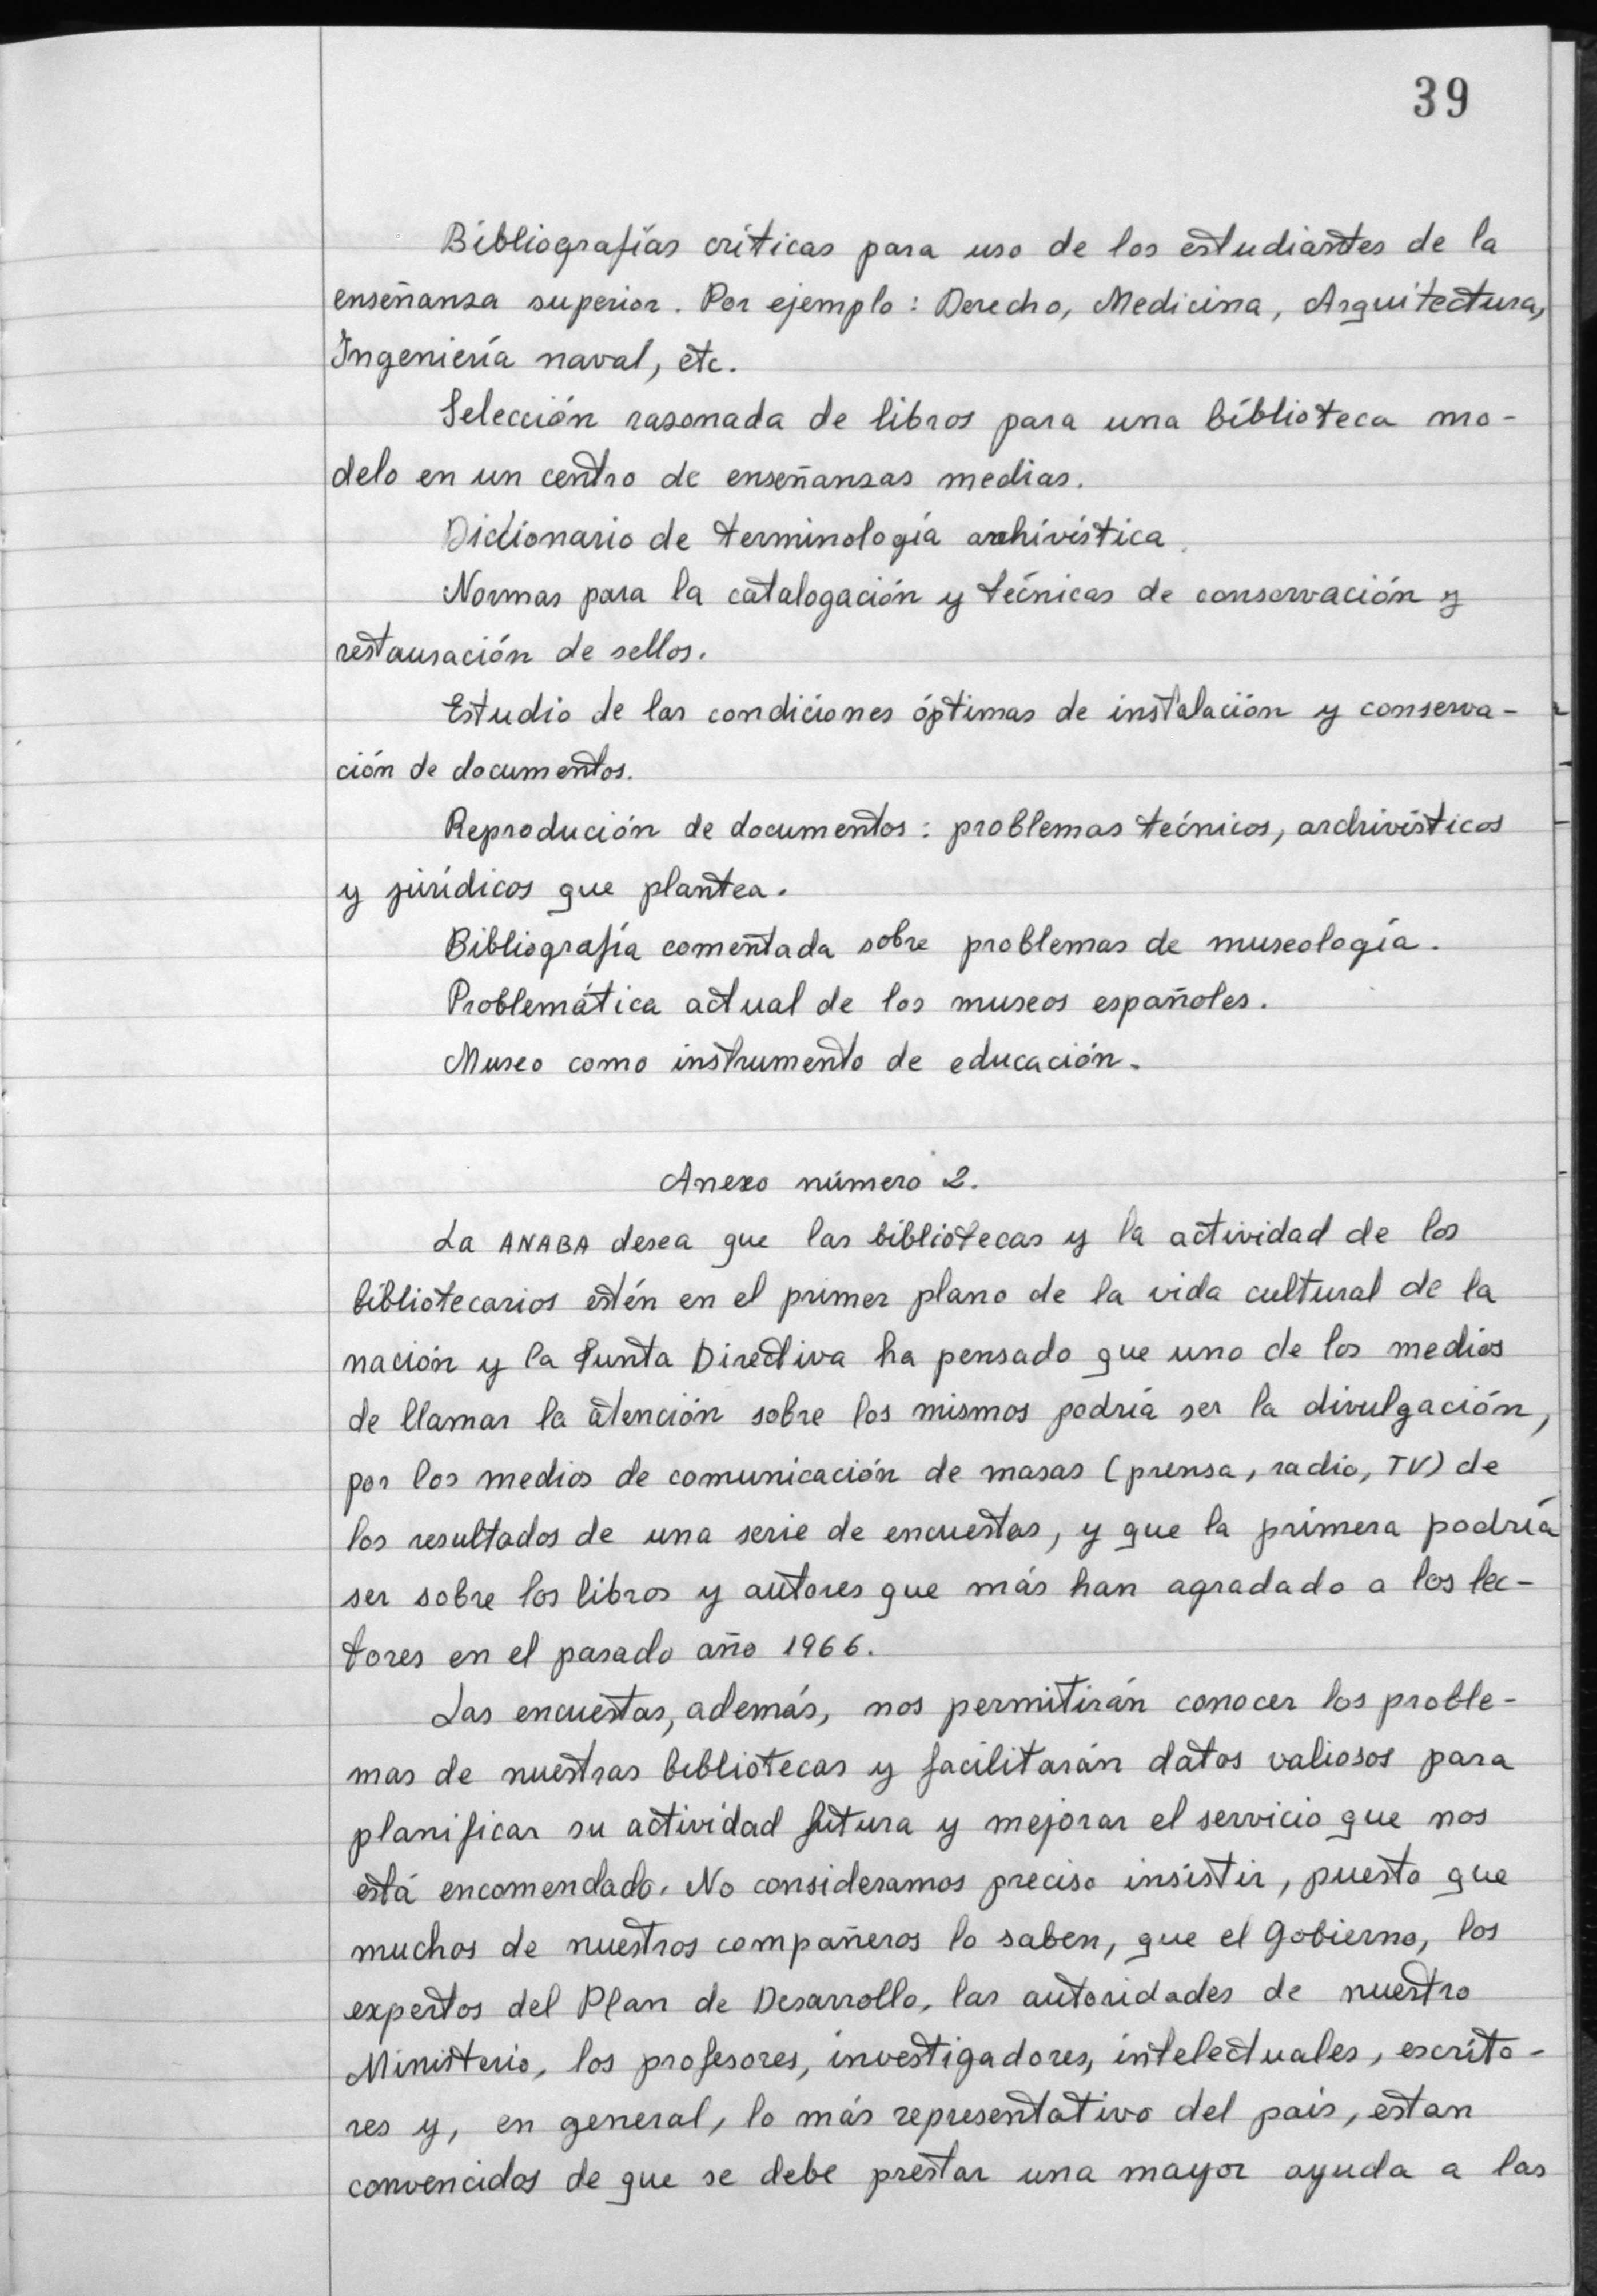 39
Bibliografías críticas para uso de los estudiantes de la
enseñanza superior. Por ejemplo: Derecho, Medicina, Arquitectura,
Ingeniería naval, etc.
Selección razonada de libros para una biblioteca mo-
delo en un centro de enseñanzas medias.
Diccionario de terminología archivística.
Normas para la catalogación y técnicas de conservación y
restauración de sellos.
Estudio de las condiciones óptimas de instalación y conserva-
ción de documentos.
Reprodución de documentos: problemas técnicos, archivísticos
y jurídicos que plantea.
Bibliografía comentada sobre problemas de museología.
Problemática actual de los museos españoles.
Museo como instrumento de educación.
Anexo número 2.
La ANABA desea que las bibliotecas y la actividad de los
bibliotecarios estén en el primer plano de la vida cultural de la
nación y la Junta Directiva ha pensado que uno de los medios
de llamar la atención sobre los mismos podría ser la divulgación,
por los medios de comunicación de masas (prensa, radio, TV) de
los resultados de una serie de encuestas, y que la primera podría
ser sobre los libros y autores que más han agradado a los lec-
tores en el pasado año 1966.
Las encuestas, además, nos permitirán conocer los proble-
mas de nuestras bibliotecas y facilitarán datos valiosos para
planificar su actividad futura y mejorar el servicio que nos
está encomendado. No consideramos preciso insistir, puesto que
muchos de nuestros compañeros lo saben, que el Gobierno, los
expertos del Plan de Desarrollo, las autoridades de nuestro
Ministerio, los profesores, investigadores, intelectuales, escrito-
res y, en general, lo más representativo del país, estan
convencidos de que se debe prestar una mayor ayuda a las